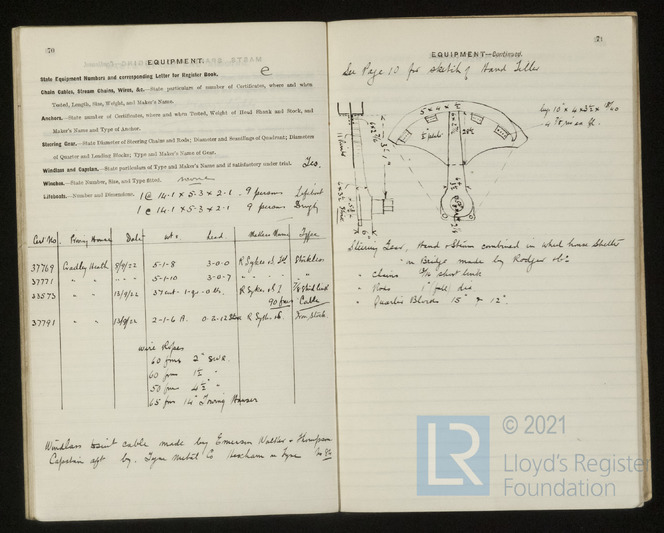 70
EQUIPMENT.
State Equipment Numbers and corresponding Letter for Register Book.
e
Chain Cables, Stream Chains, Wires, &c.—State particulars of number of Certificates, where and when
Tested, Length, Size, Weight, and Maker's Name.
Anchors.—State number of Certificates, where and when Tested, Weight of Head Shank and Stock, and
Maker's Name and Type of Anchor.
Steering Gear.—State Diameter of Steering Chains and Rods; Diameter and Scantlings of Quadrant; Diameters
of Quarter and Leading Blocks; Type and Maker's Name of Gear.
Windlass and Capstan.—State particulars of Type and Makers's Name and if satisfactory under trial. Yes.
Winches.—State Number, Size, and Type fitted. None
Lifeboats.—Number and Dimensions. 1 @ 14·1 × 5·3 × 2·1 · 9 persons Lifeboat
1 @ 14·1 × 5·3 × 2·1 9 persons
Cert No. Proving House Date wt. head. Makers Name Type
37769 Cradley Heath 8/9/22 5-1-8 3-0-0 R Sykes & Stockless
37771 " " " " " 5-1-10 3-0-7 " " "
33573 " " 13/9/22 37 cwt-1-qr-0 lb. R Sykes &
90 fms Cable
37791 " " 13/9/22 2-1-6 0-2-12 Stock R Sykes & Iron Stock
Wire Ropes
60 fms 2"
60 fms
50 fms 4½" "
65 fms 14" Towing Hawser
Windlass cable made by Emerson Walker & Thompson
Capstan aft by Tyne Metal Co Hexham on Tyne No 86
71
EQUIPMENT—Continued.
See Page 10 for sketch of Hand Tiller
Steering Gear, Hand & Steam combined in wheel house Shelter
on Bridge made by Rodger & Co
" chains short link
" Rods 1" dia
" Quarter Blocks 15" & 12".
LR
© 2021
Lloyd's Register
Foundation